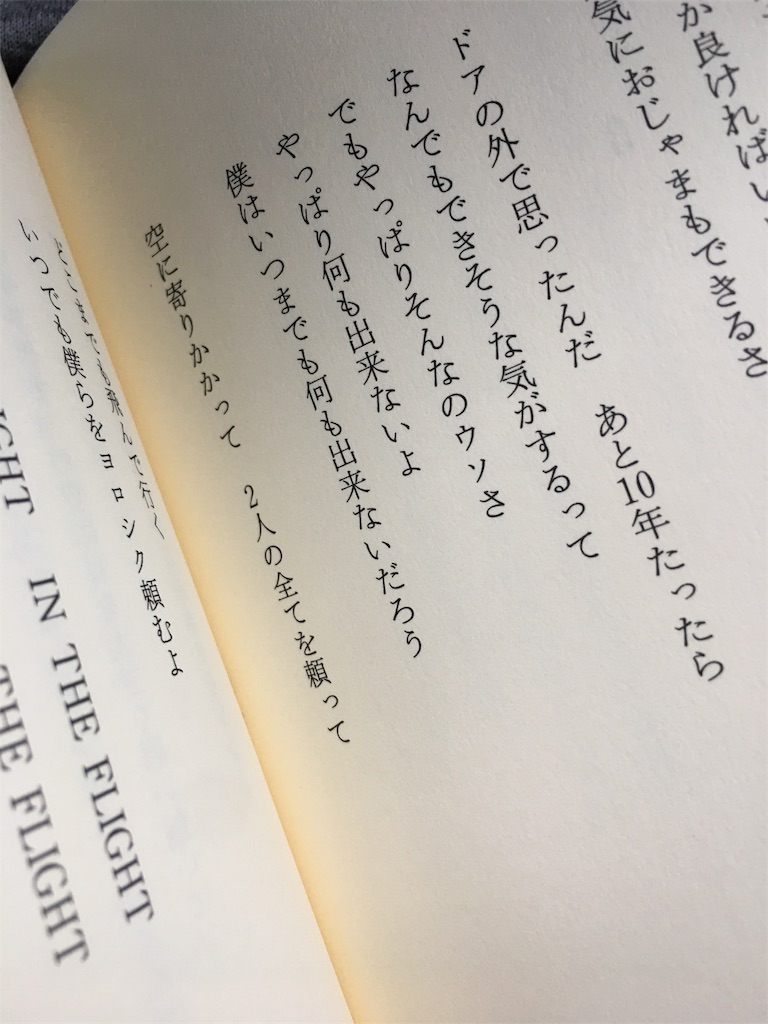 か良ければいい
気におじゃまもできるさ
ドアの外で思ったんだ　あと10年たったら
なんでもできそうな気がするって
でもやっぱりそんなのウソさ
やっぱり何も出来ないよ
僕はいつまでも何も出来ないだろう
空に寄りかかって　2人の全てを頼って
どこまでも飛んで行く
いつでも僕らをヨロシク頼むよ
IGHT　IN THE FLIGHT
THE FLIGHT